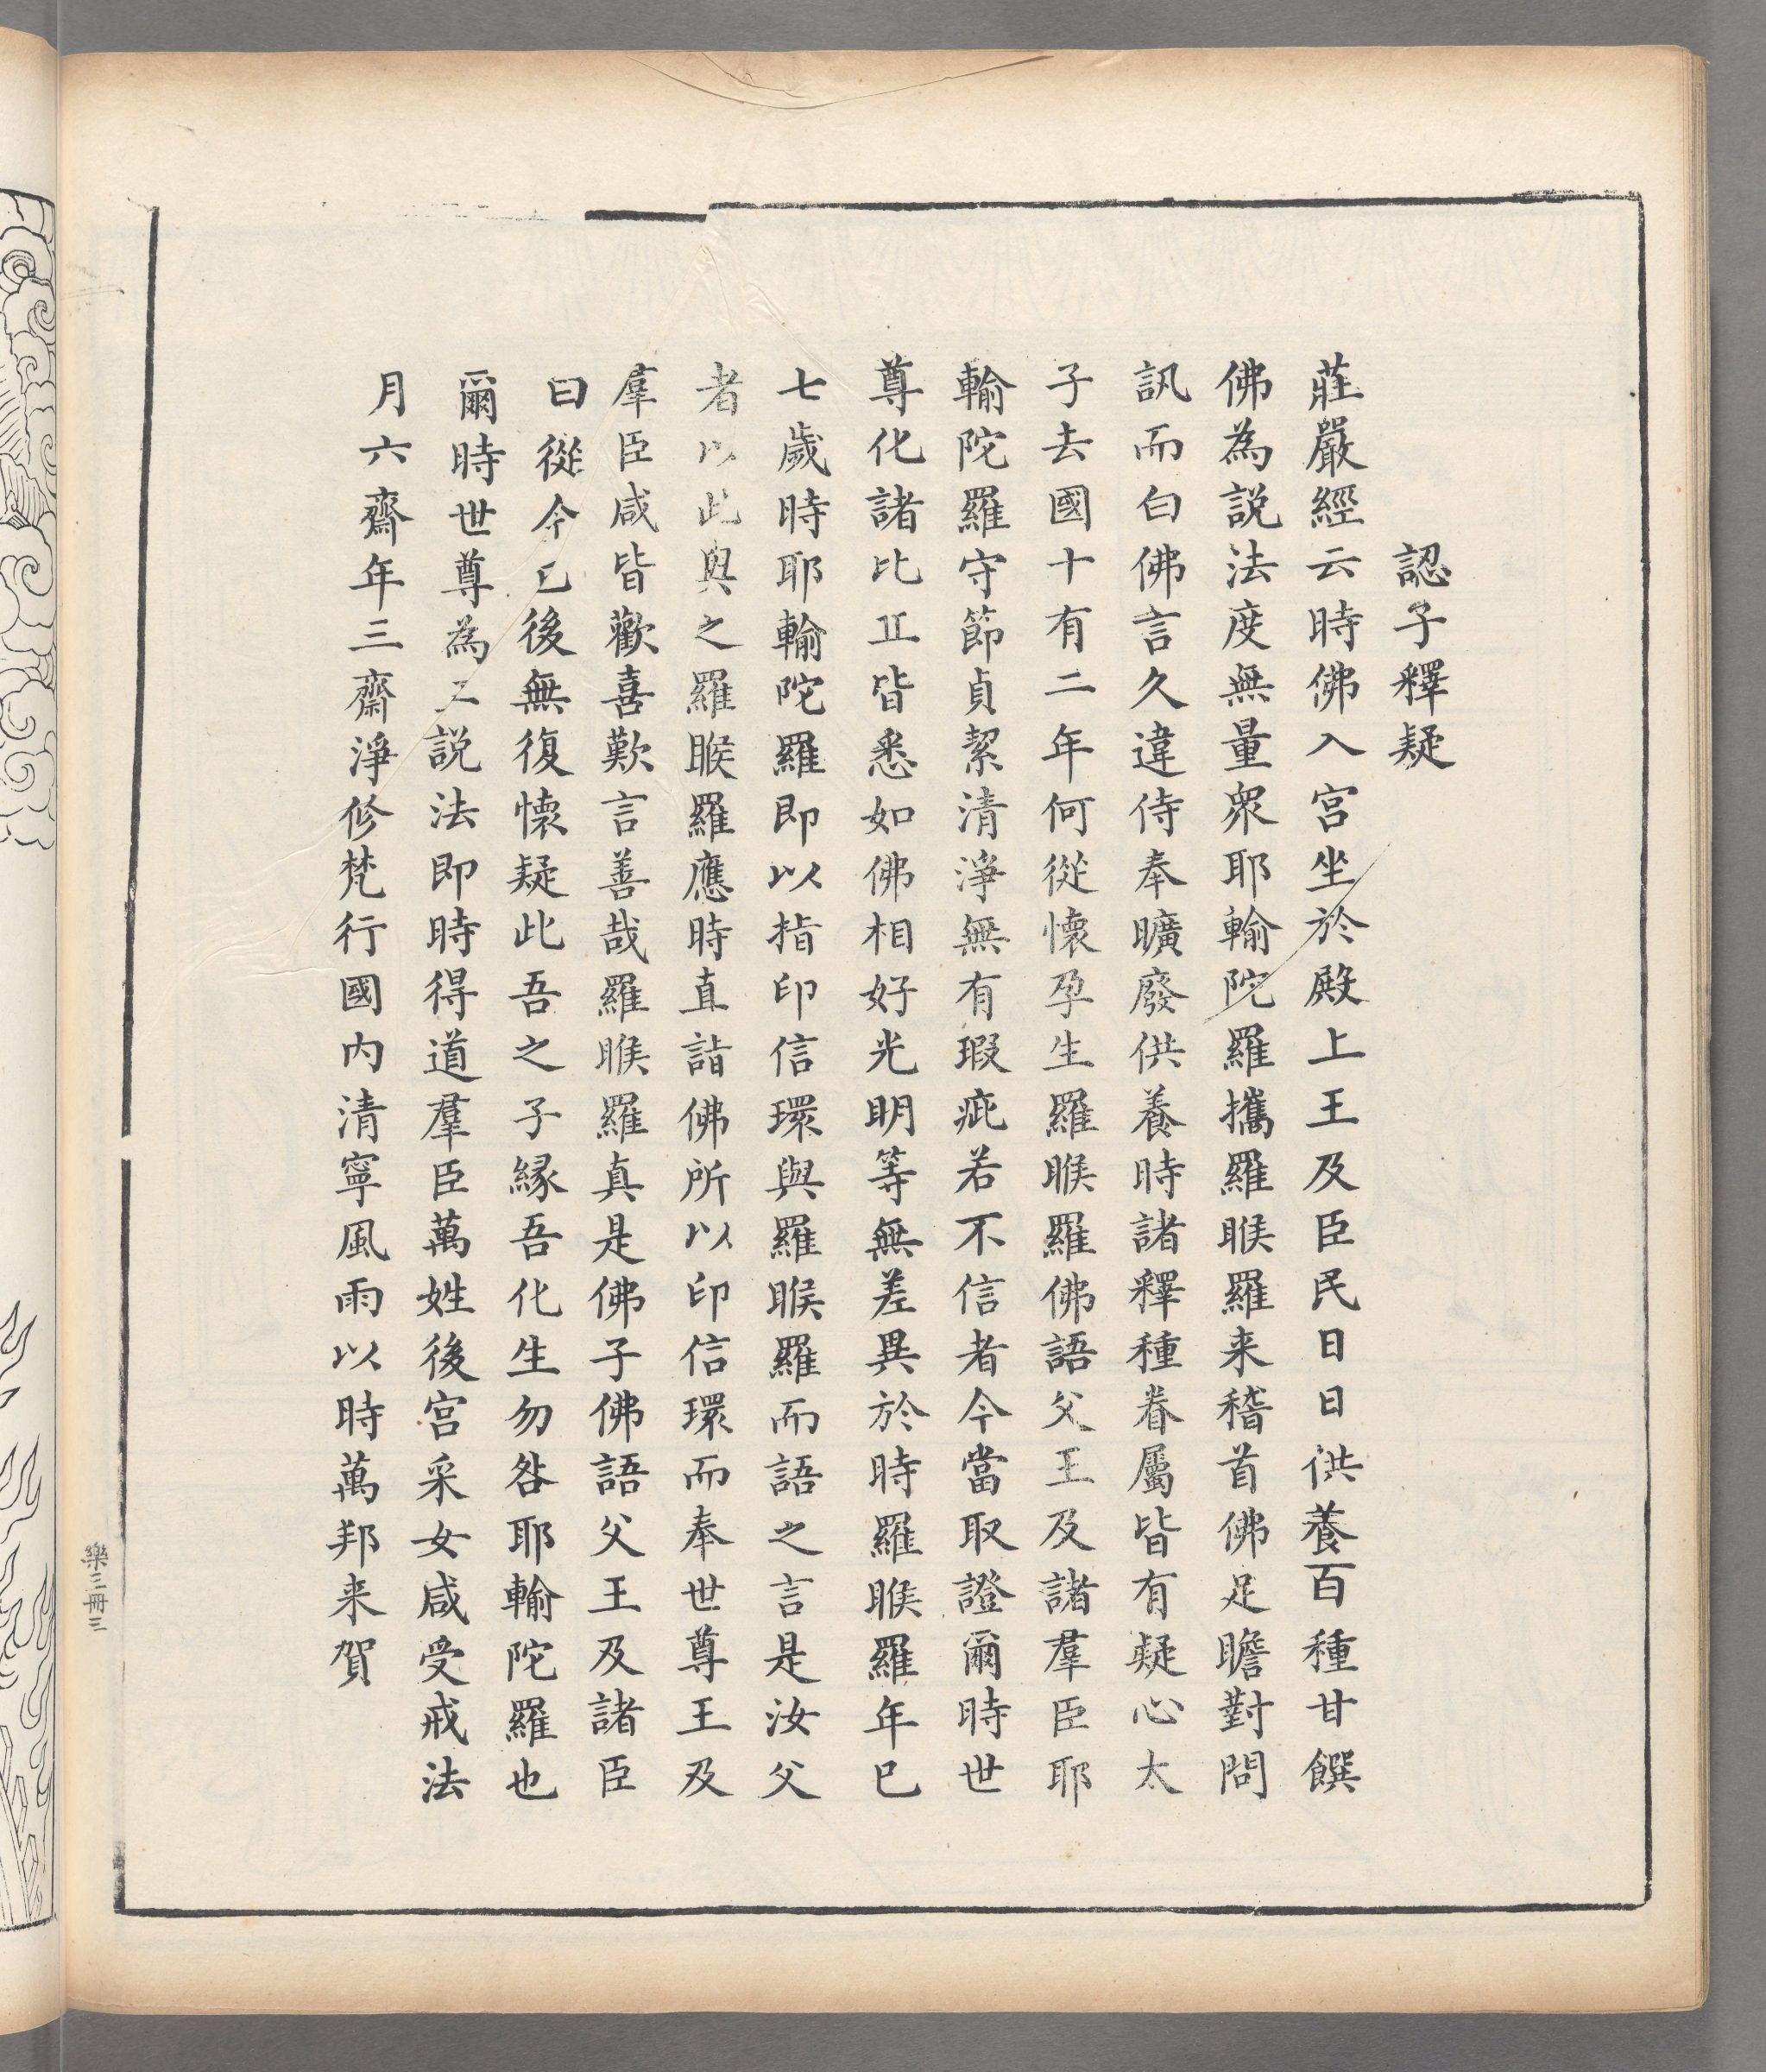 認子釋疑
莊嚴經云時佛入宮坐於殿上王及臣民日日供養百種甘饌
佛為説法度無量衆耶輸陀羅攜羅睺羅来稽首佛足瞻對問
訊而白佛言久違侍奉曠廢供養時諸釋種眷屬皆有疑心太
子去國十有二年何從懷孕生羅睺羅佛語父王及諸羣臣耶
輸陀羅守節貞絜清淨無有瑕疵若不信者今當取證爾時世
尊化諸比丘皆悉如佛相好光明等無差異於時羅睺羅年已
七歲時耶輸陀羅即以指印信環與羅睺羅而語之言是汝父
者以此與之羅睺羅應時直詣佛所以印信環而奉世尊王及
羣臣咸皆歡喜歎言善哉羅睺羅真是佛子佛語父王及諸臣
曰從今已後無復懷疑此吾之子縁吾化生勿咎耶輸陀羅也
爾時世尊為王説法即時得道羣臣萬姓後宮采女咸受戒法
月六齋年三齋淨修梵行國内清寧風雨以時萬邦来賀
樂三冊三